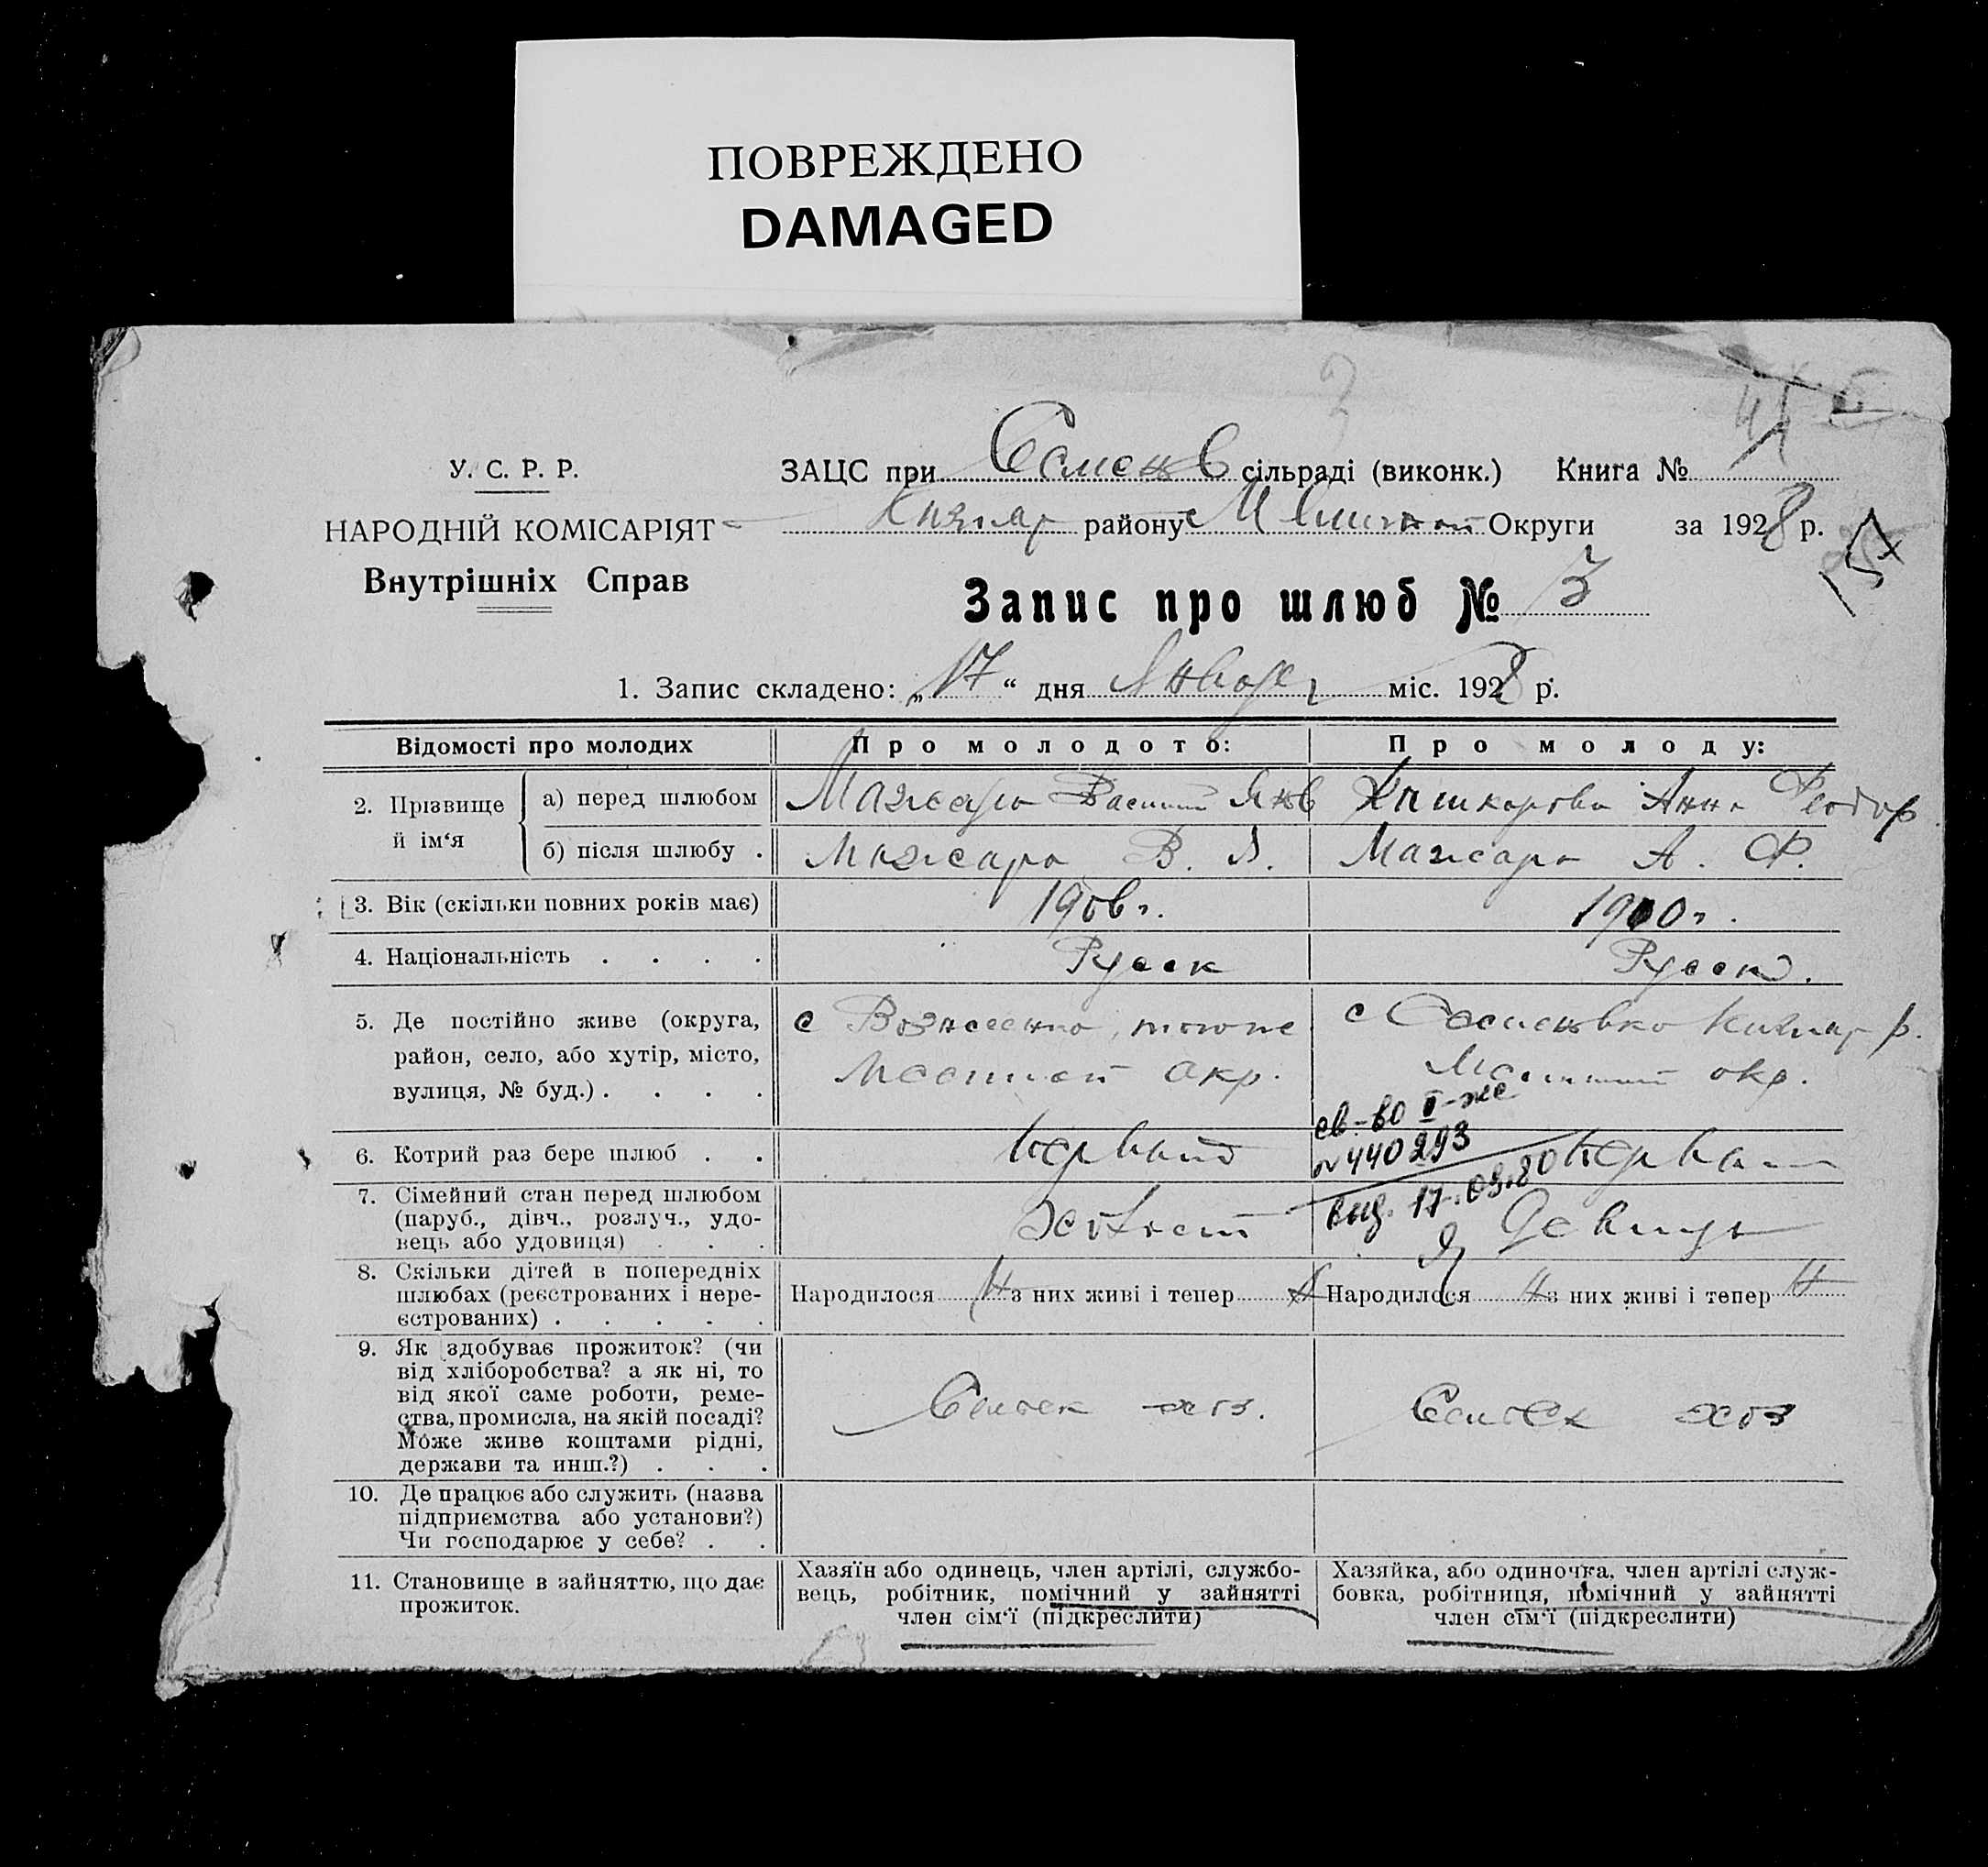 ПОВРЕЖДЕНО
DAMAGED
У. С. Р. Р.
НАРОДНІЙ КОМІСАРІЯТ
Внутрішніх Справ
ЗАЦС при Семенов сільраді (виконк.) Книга № 1
району Округи за 1928 р.
Запис про шлюб № 3
1. Запис складено: „17“ дня Января міс. 1928 р.
Відомості про молодих
Про молодого:
Про молоду:
2. Прізвище й ім‘я
а) перед шлюбом
Мажара Василий Яков
Анна Феодор
б) після шлюбу .
Мажара В. Я.
Мажара А. Ф.
3. Вік (скільки повних років має)
1906 г.
1900 г.
4. Національність . . . .
Русск
Русск.
5. Де постійно живе (округа,
район, село, або хутір, місто,
вулиця, № буд.) . . . .
с Вознесенка, тоже
окр.
с Семеновка р.
окр.
6. Котрий раз бере шлюб . .
первый
св-во II-же
№ 440293
выд. 17.03.80
первый
7. Сімейний стан перед шлюбом
(паруб., дівч., розлуч., удо-
вець або удовиця) . . .
Холост
Девица
8. Скільки дітей в попередніх
шлюбах (реєстрованих і нере-
єстрованих) . . . . .
Народилося Н з них живі і тепер Н
Народилося Н з них живі і тепер Н
9. Як здобуває прожиток? (чи
від хліборобства? а як ні, то
від якої саме роботи, реме-
ства, промисла, на якій посаді?
Може живе коштами рідні,
держави та инш.?) . . .
Сельск хоз.
Сельск хоз
10. Де працює або служить (назва
підприємства або установи?)
Чи господарює у себе? . .
11. Становище в зайняттю, що дає
прожиток.
Хазяїн або одинець, член артілі, службо-
вець, робітник, помічний у зайнятті
член сім‘ї (підкреслити)
Хазяйка, або одиночка, член артілі служ-
бовка, робітниця, помічний у зайнятті
член сім‘ї (підкреслити)